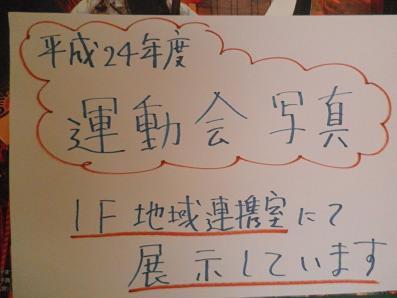 平成24年度
運動会写真
1F 地域連携室にて
展示しています